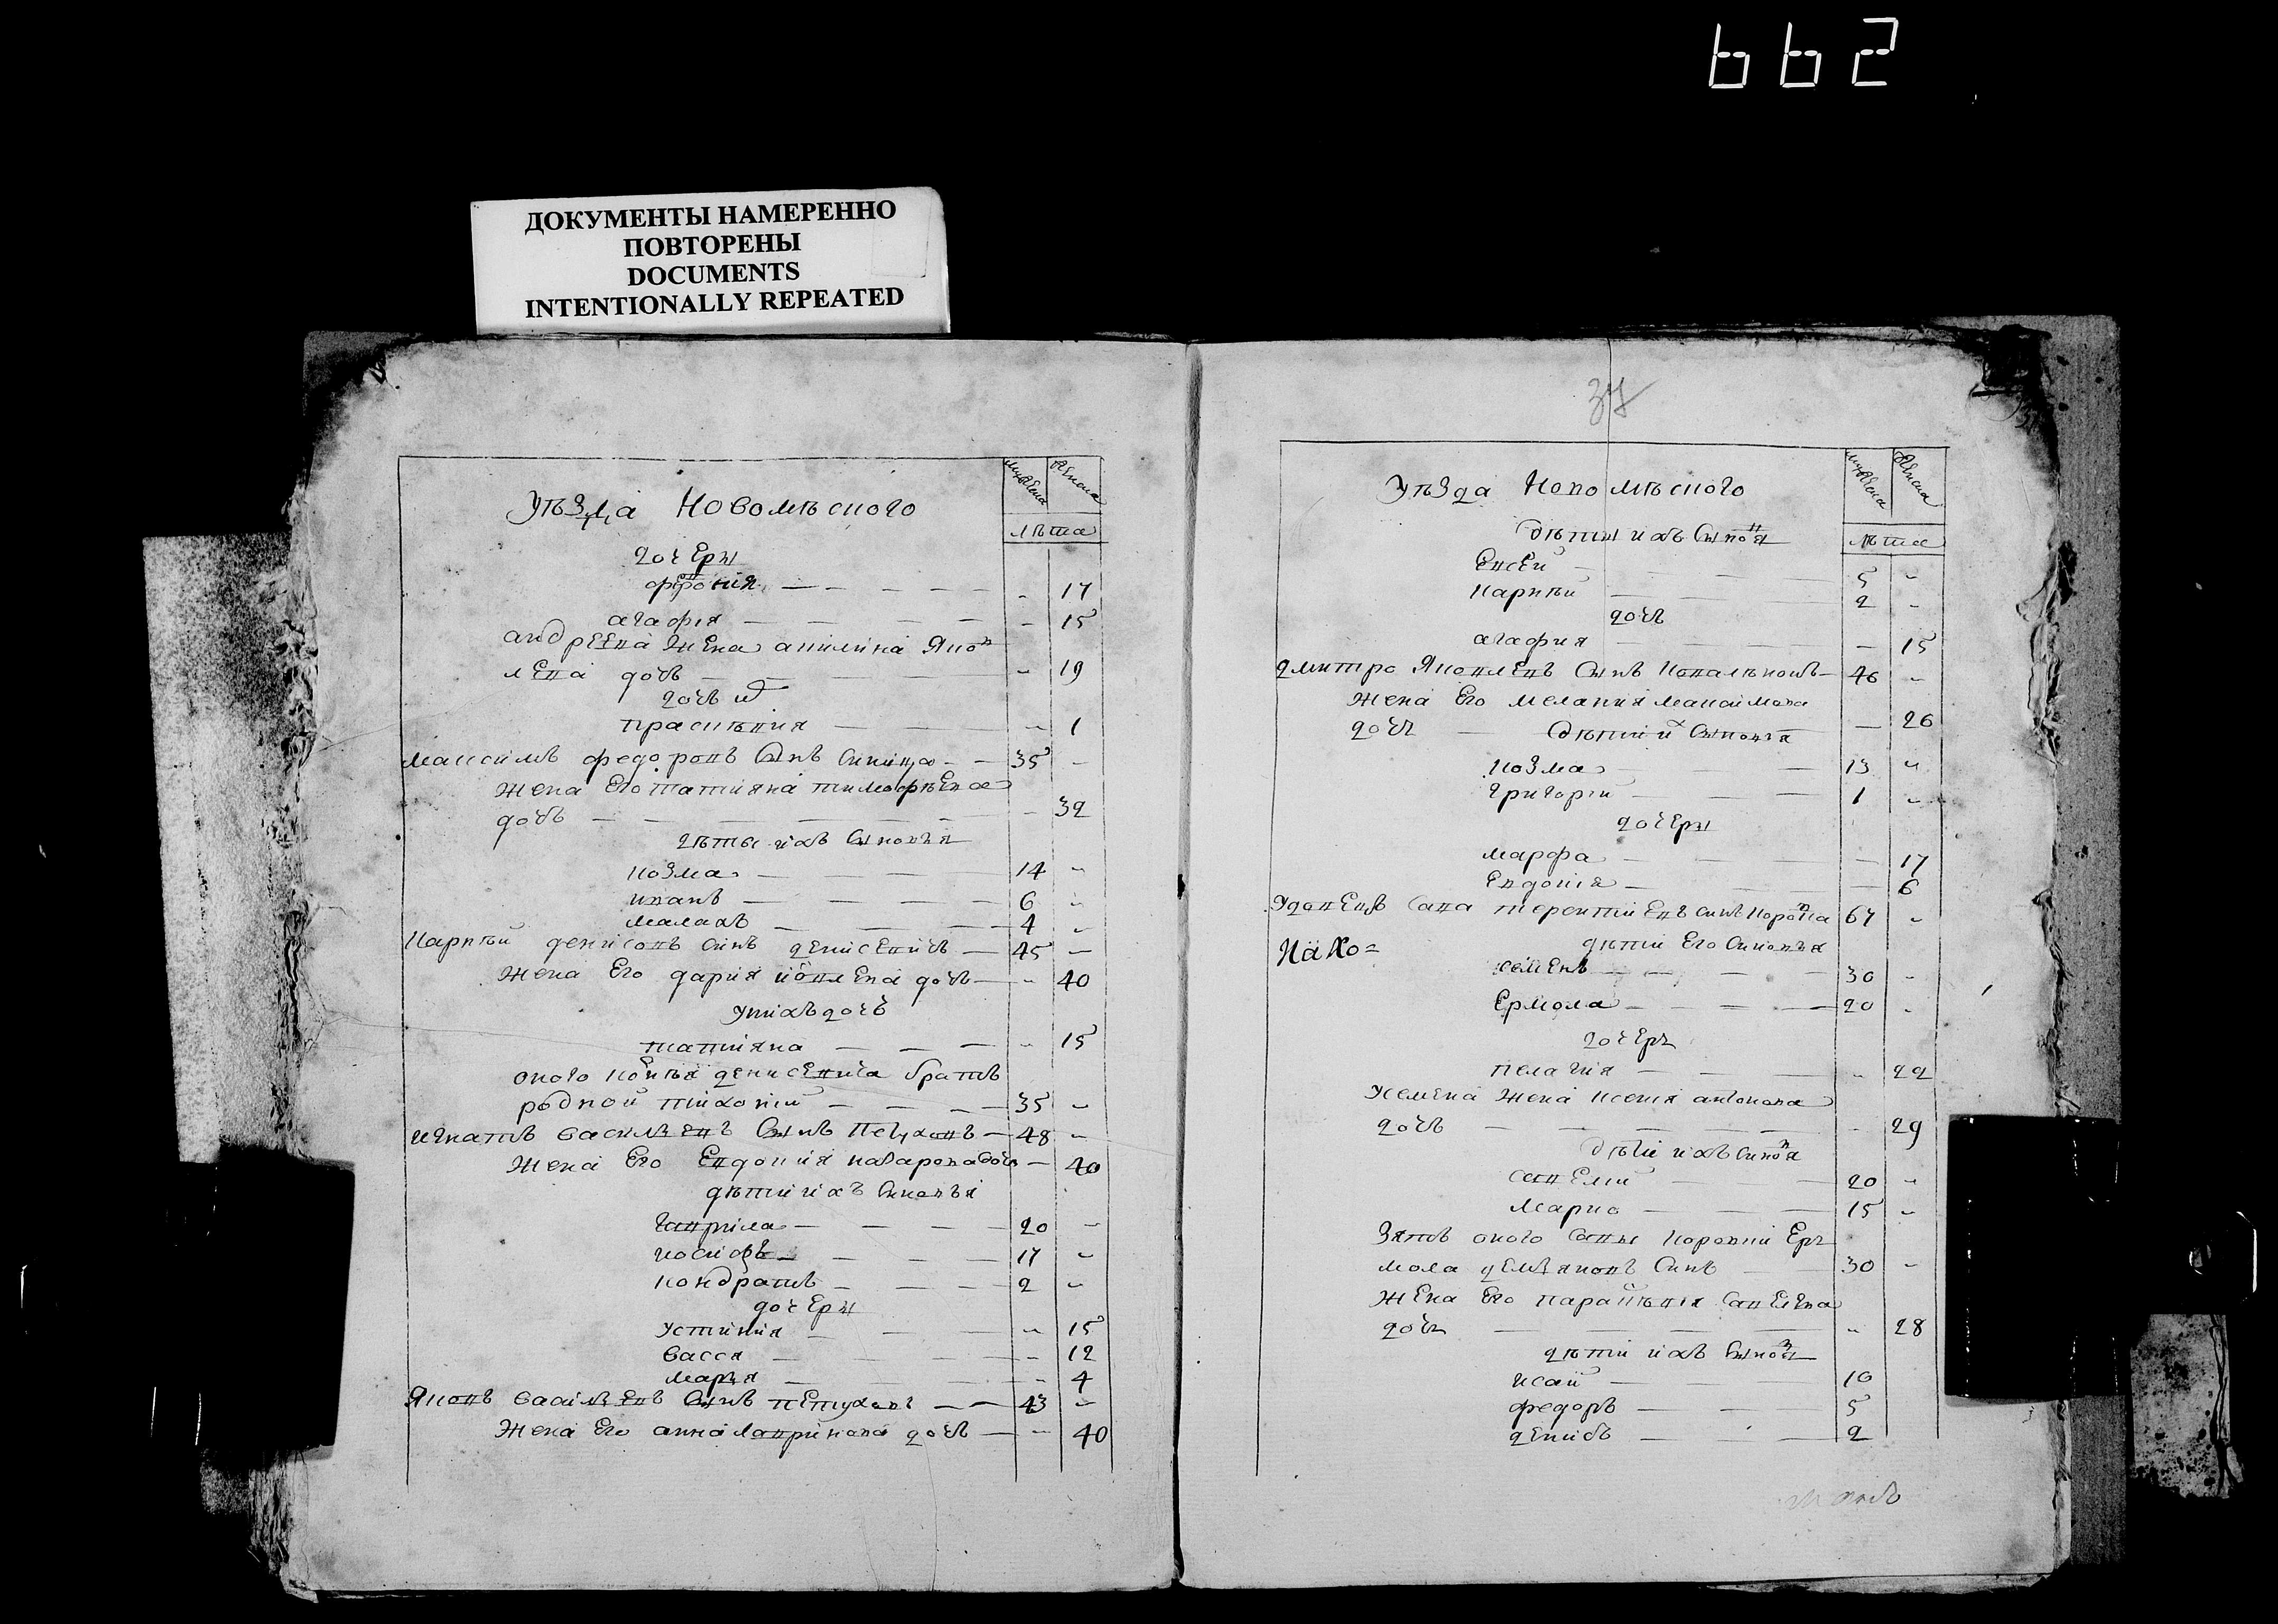 662
ДОКУМЕНТЫ НАМЕРЕННО
ПОВТОРЕНЫ
DOCUMENTS
INTENTIONALLY REPEATED
уѣзда Новомѣского
мужеска
женска
лѣта
дочеры
17
агафия — 15
андреева жена акилина Яков
лева дочь — 19
дочь
прасковия — 1
максимъ федоровъ сынъ — 35
жена Его татияна тимофѣева
дочь — 32
дѣты ихъ сыновья
козма — 14
иванъ — 6
малахъ — 4
карпѣй денисовъ синъ денисевичъ — 45
жена Его дария дочь — 40
у нихъ дочь
татияна — 15
оного денисевича братъ
родной тихоний — 35
игнатъ василѣевъ сынъ Петуховъ — 48
жена Его Евдокия назарова дочь — 40
дѣти ихъ синовья
гаврила — 20
иосифъ — 17
кондратъ — 2
дочеры
устиния — 15
васса — 12
мария — 4
Яковъ василѣевъ сынъ петуховъ — 43
жена Его анна лаврикова дочь — 40
37
уѣзда Новомѣского
мужеска
женска
лѣта
дѣты ихъ сыновя
Евсей — 5
карпѣй — 2
дочь
агафия — 15
дмитро Яковлевъ сынъ Ковальковъ — 46
жена Его мелания максимова
дочь — 26
дѣтий сыновя
козма — 13
григорий — 1
дочеры
марфа — 17
Евдокия — 6
удовецъ сава терентиевъ синъ — 67
дѣти Его синовья
семенъ — 30
Ермола — 20
дочеръ
пелагия — 22
семена жена ксения антонова
дочь — 29
дѣти ихъ синов
савелий — 20
марко — 15
зятъ оного савы Ер
мола демяновъ синъ — 30
жена Его савелева
дочь — 28
дѣти ихъ сынов
исай — 10
федоръ — 5
денисъ — 2